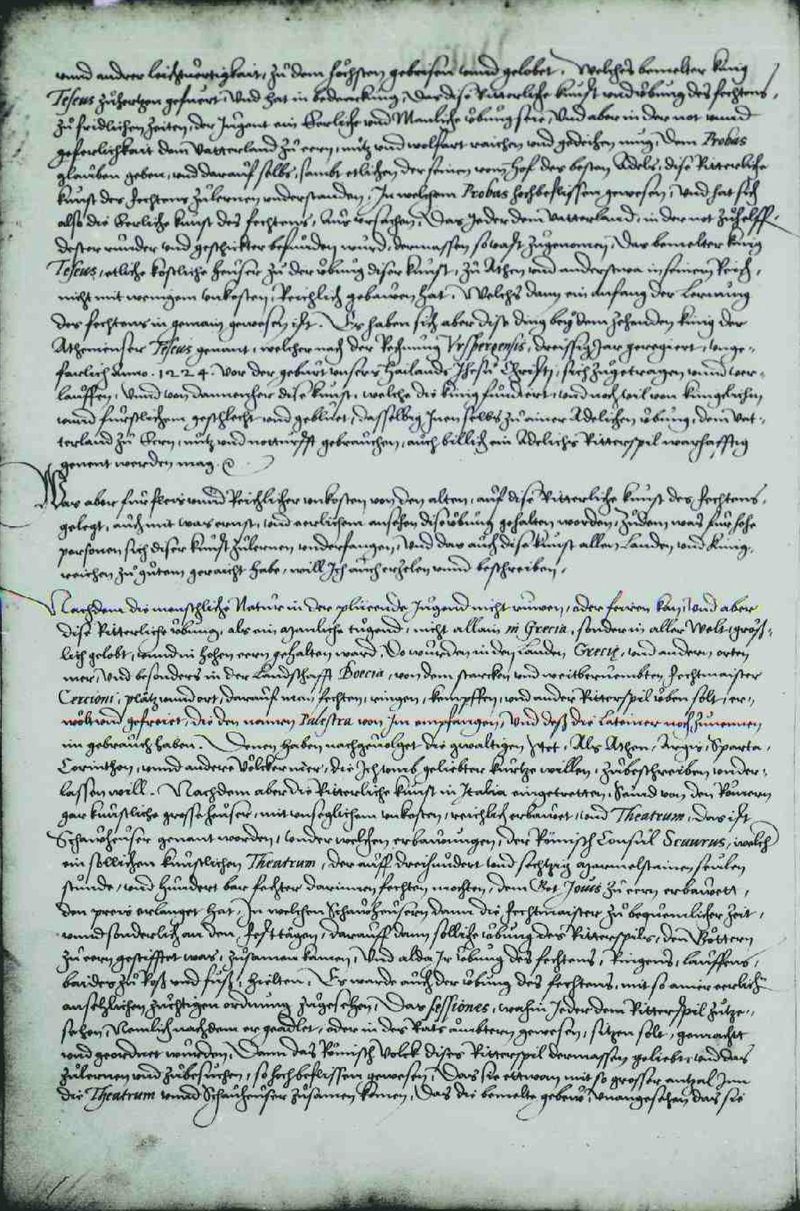 vnnd anderer leichtuertigkait, zu dem höchsten gebrisen vnnd gelobet. Welches bemelter kinig
Teseus zuhertzen gefuert, Vnd hat in bedenckung, Das dise Ritterliche kunst vnd ubung des fechtens,
zu fridlichen zeiten, der Jugent ein Eerliche vnd Manliche ubung seie, Vnd aber in der not vnnd
geferlichkait dem Vatterland zu eern, nutz vnd wolfart raichen vnd gedeihen mug, Dem Probas
glauben geben, vnd darauf selbs, sambt etlichen der seinen vom Hof des besten Adels, dise Ritterliche
kunst des Fechtens zulernen vnderstanden, In welchem Probas hochbeflissen gewesen, Vnd hat sich
also die Eerliche kunst des fechtens, Aus vrsachen, Das Jeder dem Vatterland, in der not zuhelffen
dester runder vnd geschickter befunden wurd, dermassen so vast zugenomen, Das bemelter kinig
Teseus, etliche köstliche heuser zu der ubung diser kunst, zu Athen vnd anderstwa in seinem Reich,
nicht mit wenigem vnkosten, Reichlich gebawen hat, Welchs dann ein anfang der Lernung
des fechtens in gemain gewesen ist. Es haben sich aber dise ding bey dem zehenden kinig der
Athenienser Teseus genant, welcher nach der Rechnung Vrspergensis, dreissig Jar geregiert, vnge-
farlich Anno. 1224. vor der geburt vnsers Hailands Jhesu Christi, sich zugetragen vnnd ver-
lauffen, Vnnd von dannenher dise kunst, welche die kinig fundiert, vnd noch vil von kunigclichem
vnnd furstlichem geschlecht vnd gebluet, dasselbig Jnen selbs zu ainer Adelichen ubung, dem Vat-
terland zu Eern, nutz vnd notturfft gebrauchen, auch billich ein Adelichs Ritterspil warhafftig
genent werden mag.
Was aber fur fleis vnnd Reichlicher vnkosten von den alten, auf dise Ritterliche kunst des Fechtens,
gelegt, auch mit was ernst, vnd eerlichem ansehen dise ubung gehalten worden, Zudem was fur hohe
personen sich diser kunst zulernen vnderfangen, Vnd das auch dise kunst allen Landen vnd Kunig-
reichen zu gutem geraicht habe, will Jch auch erholen vnnd beschreiben,
Nachdem die menschliche Natur in der pluende Jugend nicht ruwen, oder feiren kan, Vnd aber
dise Ritterliche ubung, als ein Manliche tugend, nicht allain in Grecia, sonder in aller Welt gröss-
lich gelobt, vnnd in hohen eern gehalten ward, Do wurden in den landen Grecię, vnd andern orten
mer, Vnd besonders in der Landschafft Boecia, von dem starcken vnd weitberuembten Fechtmaister
Cercioni, plätz vnnd ort, darauf man fechten, ringen, kempffen, vnd ander Ritterspil uben solt, er-
wölt vnd gefreiet, die den namen Palestra von Jm empfangen, Vnd dess die Lateiner noch zunennen
im gebrauch haben. Denen haben nachgeuolget die gwaltigen Stet, Als Athen, Argis, Sparta,
Corinthen, vnnd andere Völcker mer, die Jch vmb geliebter kurtze willen, zubeschreiben vnder-
lassen will. Nachdem aber die Ritterliche kunst in Italia eingetretten, Sind von den Römern
gar kunstliche grosse heuser, mit vnseglichem vnkosten, reichlich erbawet, vnd Theatrum, das ist
Schawheuser genant worden, vnder welchen erbawungen, der Römisch Consul Scaurus, welch
ein sollichen kunstlichen Theatrum, der auff dreihundert vnd sechtzig Marmelstainen seulen
stunde, vnd hundert bar fechter darinnen fechten mochten, dem Got Jouis zu eern erbawett,
den preis erlanget hat, In welchen Schawheusern dann die fechtmaister zu bequemlicher zeit,
vnnd sonderlich an den Festtägen, darauff dann solliche ubung des Ritterspils, den Göttern
zu eern gestifftet was, zusamen kamen, Vnd alda Jr ubung des fechtens, Ringens, lauffens,
baides zu Ross vnd fuss, hielten, Es warde auch der ubung des fechtens, mit so ainer eerlichen
ansehlichen, zuchtigen ordnung zugesehen, Das sessiones, wohin Jeder dem Ritterspil zuzu-
sehen, Nemlich nachdem er geadlet, oder in des Rats ämbtern gewesen, sitzen solt, gemacht
vnd geordnet wurden, Dann das Römisch Volck dises Ritterspil dermassen geliebt, vnd das
zulernen vnd zubesuchen, so hochbeflissen gewesen, Das sie ettwan mit so grosser antzal Inn
die Theatrum vnnd Schawheuser zusamen komen, Das die bemelte gebew vnangesehen das sie